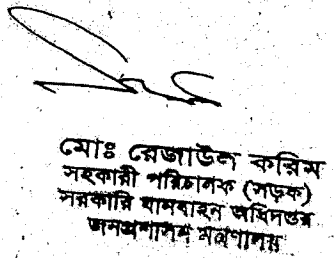 মোঃ রেজাউল করিম
সহকারী পরিচালক (সড়ক)
সরকারি যানবাহন অধিদপ্তর
জনপ্রশাসন মন্ত্রণালয়